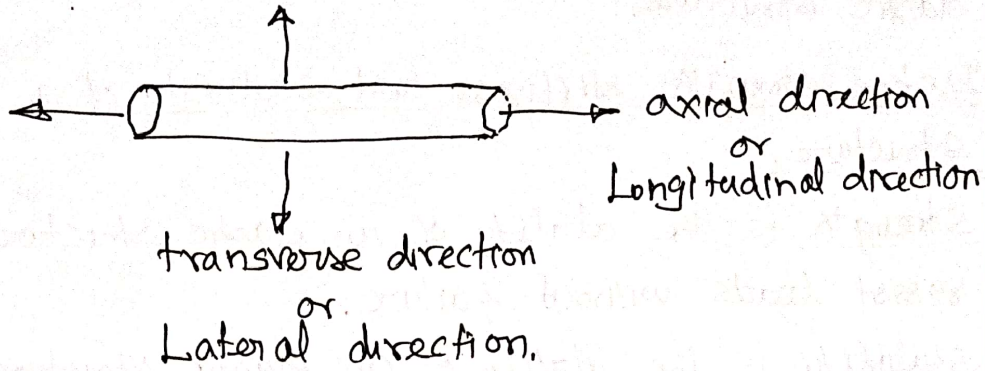 axial direction
or
Longitudinal direction
transverse direction
or
Lateral direction.